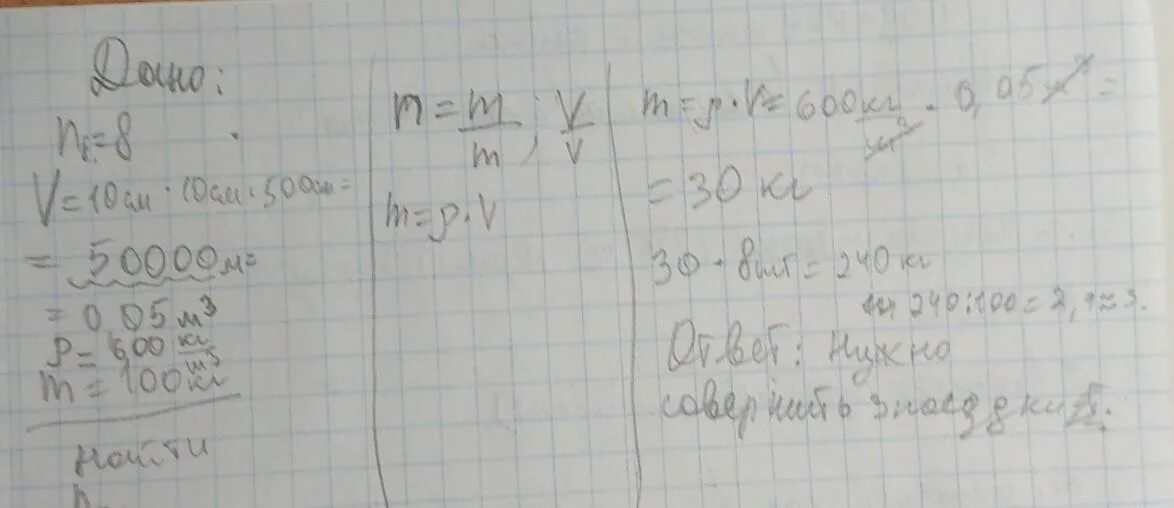 Дано:
n₁=8
V=10см·10см·500см=
= 50000м=
= 0,05м³
ρ= 600 кг/м³
m = 100кг
найти
n = m/m ; V/V
m=ρ·V
m=ρ·V=600кг/м³ · 0,05м³ =
= 30 кг
30 · 8шт = 240кг
240:100= 2,4≈3.
Ответ: Нужно
совершить 3 поездки